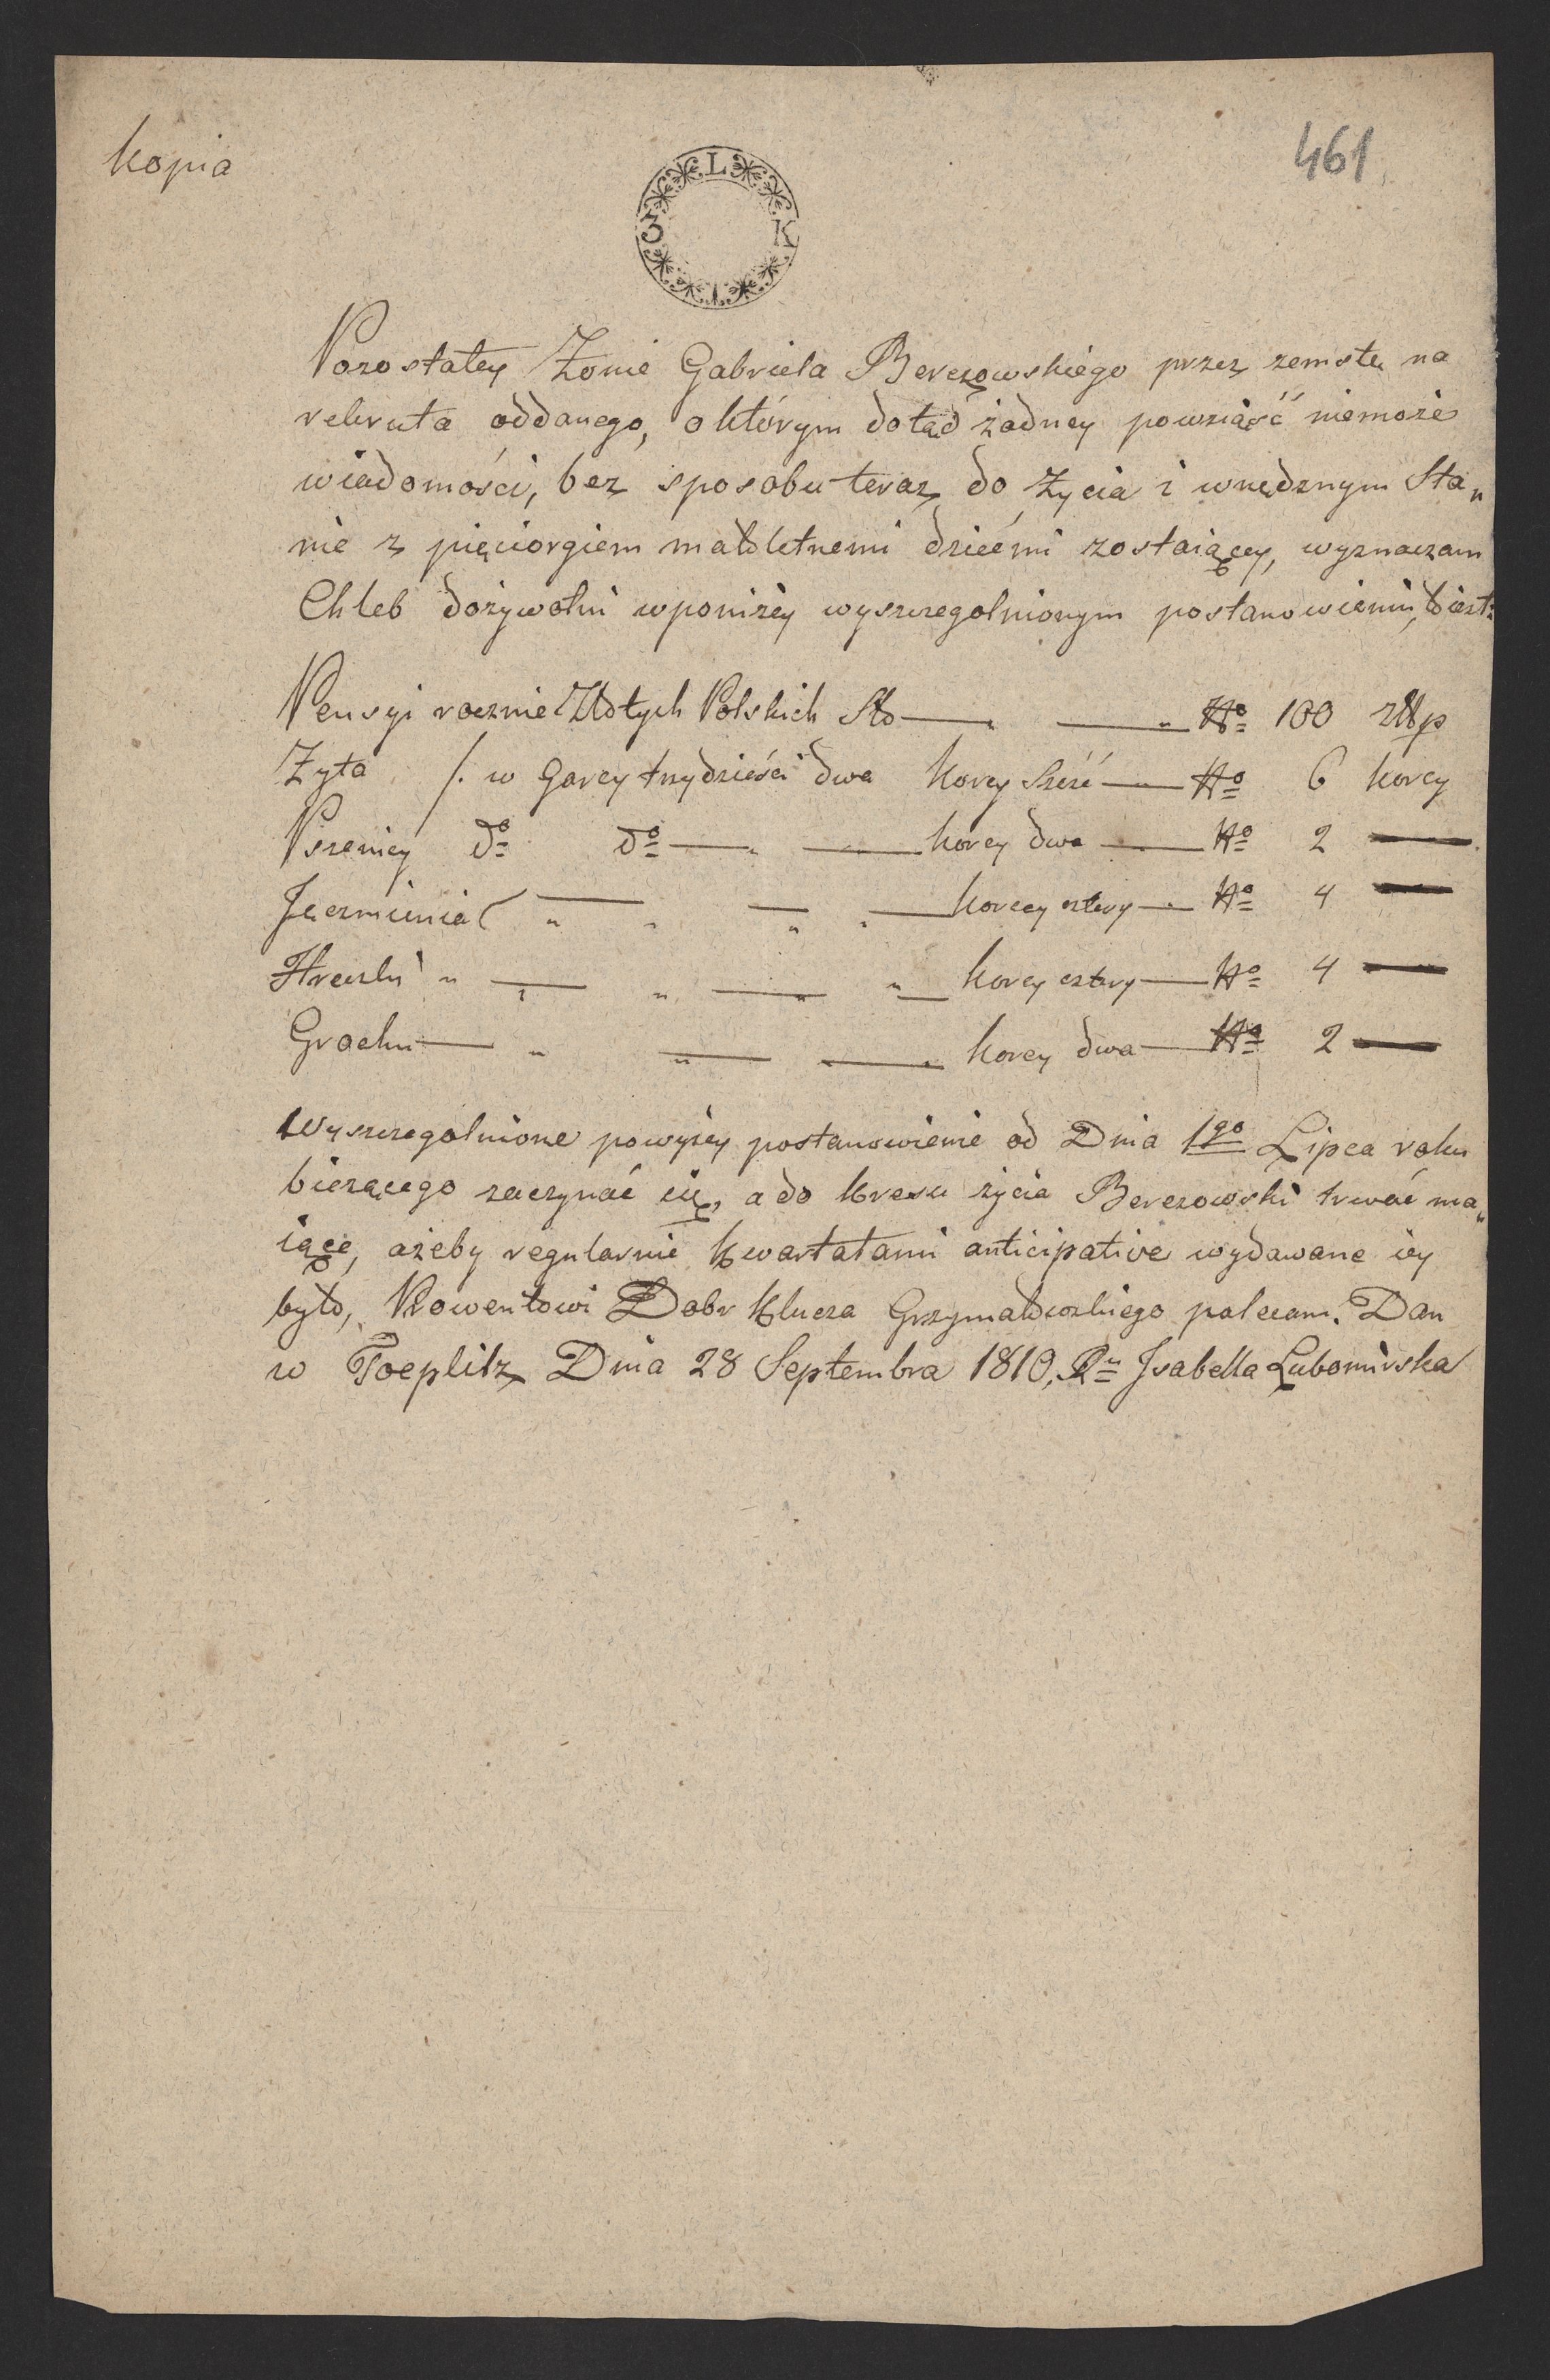 kopia
461
L
3 K
Pozostałey Żonie Gabriela Berezowskiego przez zemstę na
rekruta oddanego, o którym dotąd żadney powziąść niemoże
wiadomości, bez sposobu teraz do życia i wnędznym Sta„
nie z pięciorgiem małoletnemi dziećmi zostaiącey, wyznaczam
Chleb dożywotni wponiżey wyszczegolnionym postanowieniu, to iest:
Pensyi rocznie Złotych Polskich Sto — — No 100 złłp
Żyta /. w Garcy trzydzieści dwa Korcy Sześć — No 6 korcy
Pszenicy do do — — korcy dwa — No 2 —
Jęczmienia — — — korcey cztery — No 4 —
Hreczki — — — korcy cztery — No 4 —
Grochu — — — korcy dwa — No 2 —
Wyszczegolnione powyżey postanowienie od Dnia 1go Lipca roku
bieżącego zaczynać się, a do kresu życia Berezowski trwać ma„
iące, ażeby regularnie kwartałami anticipative wydawane iey
było, Prowentowi Dobr Klucza Grzymałowskiego polecam. Dan
w Toeplitz Dnia 28 Septembra 1810, Ru Isabella Lubomirska